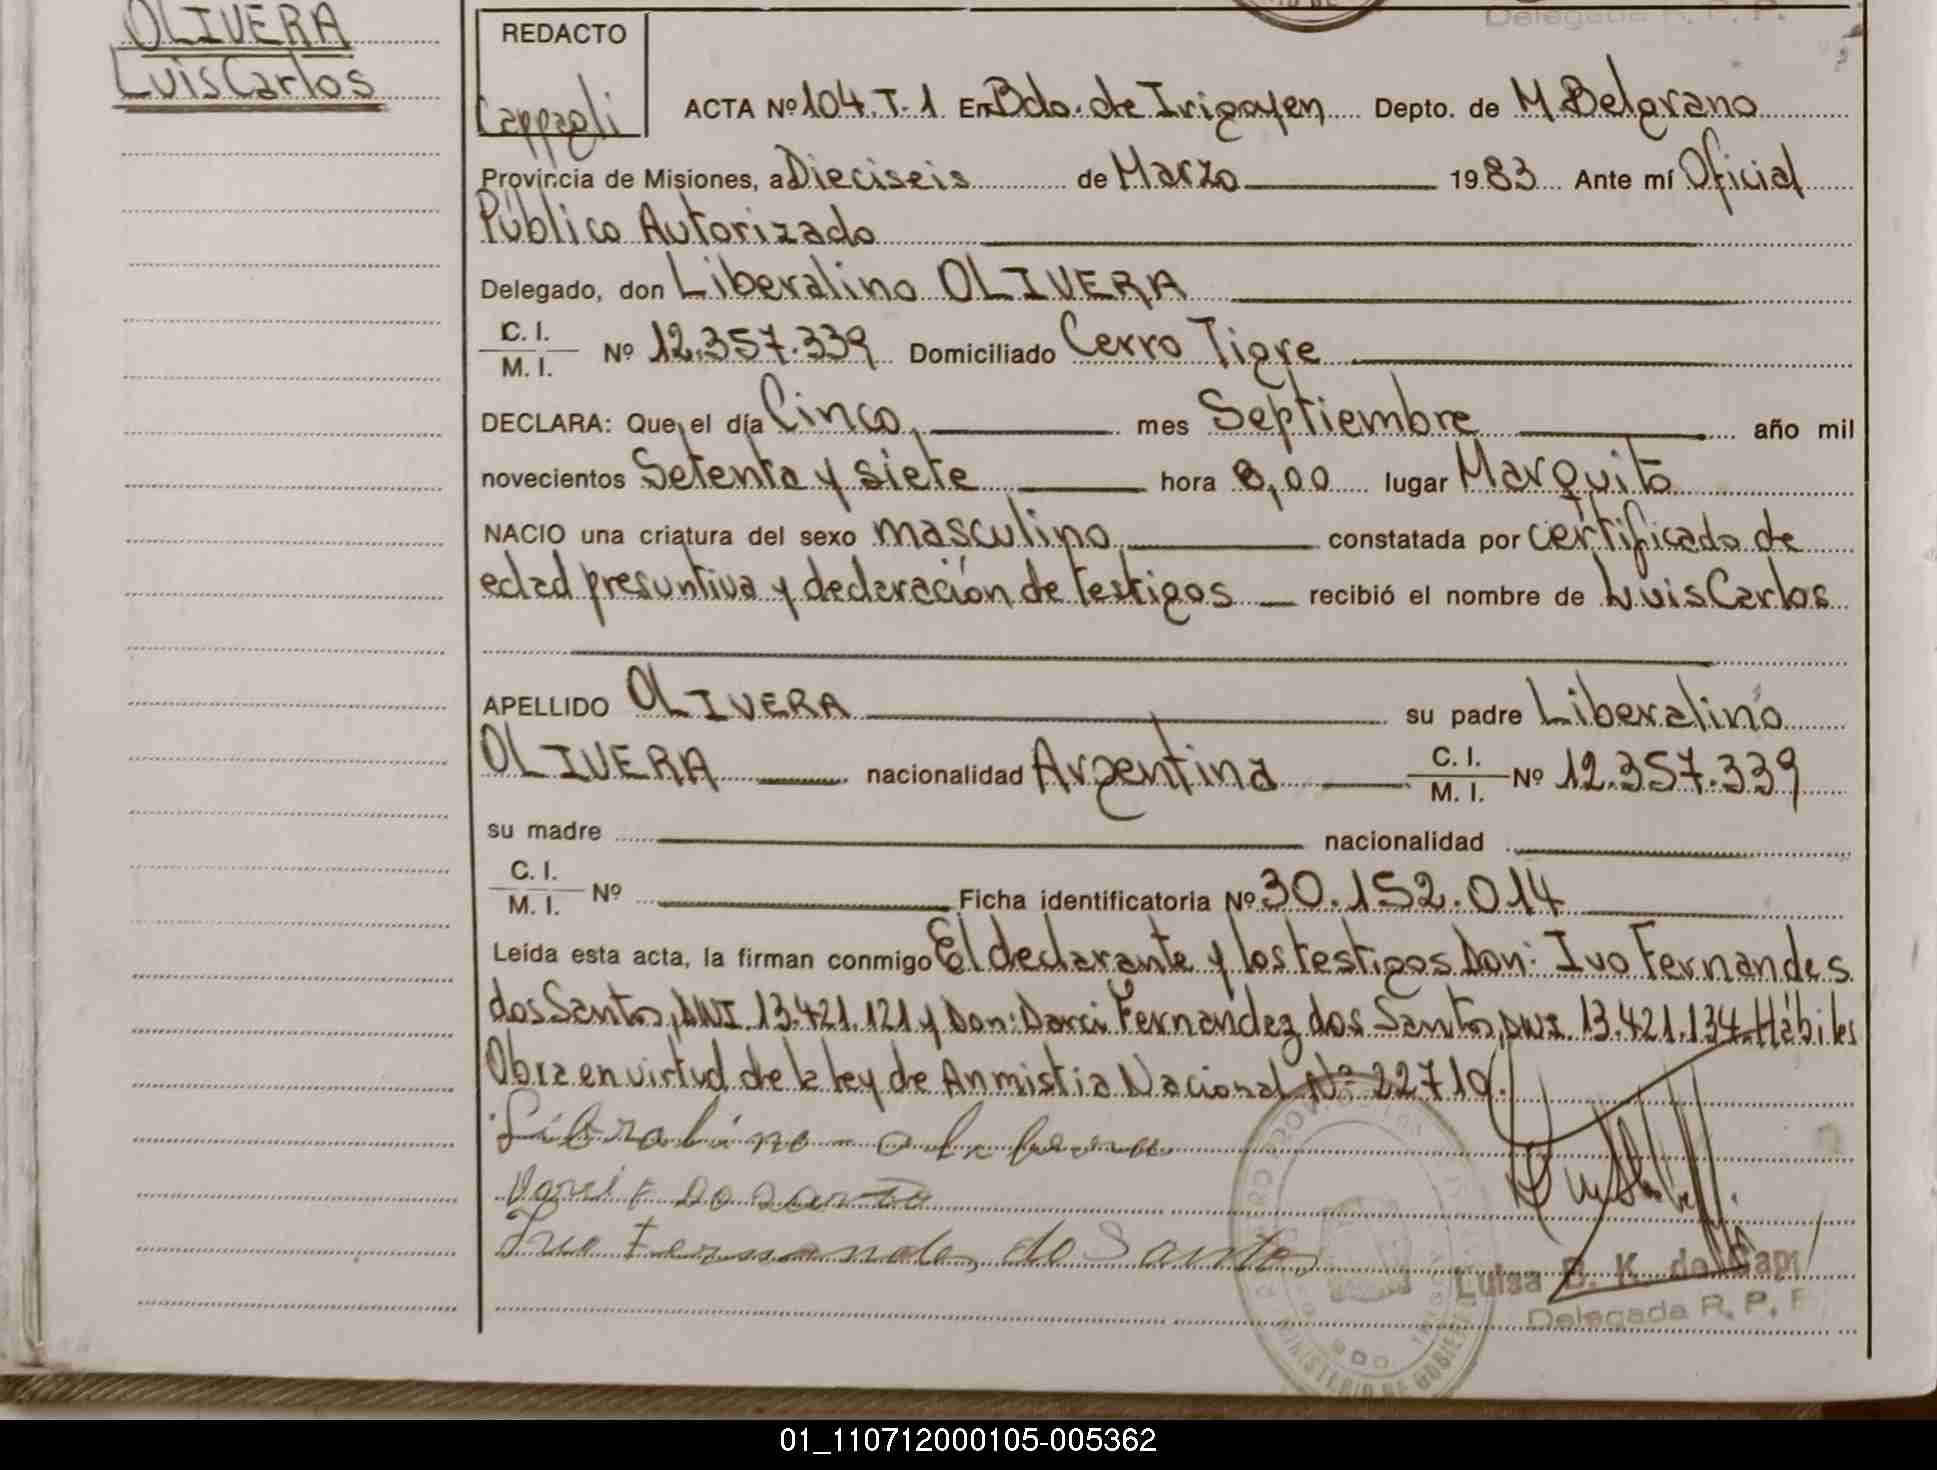 OLIVERA
Luis Carlos
REDACTO
Cappagli
Delegada R. P. P.
ACTA Nº 104. T-1 En Bdo. de Irigoyen Depto. de M Belgrano
Provincia de Misiones, a Dieciseis de Marzo 1983 Ante mí Oficial
Público Autorizado
Delegado, don Liberalino OLIVERA
C. I.
M. I. Nº 12.357.339 Domiciliado Cerro Tigre
DECLARA: Que, el día Cinco, mes Septiembre año mil
novecientos Setenta y siete hora 8,00 lugar Marquito
NACIO una criatura del sexo masculino constatada por certificado de
edad presuntiva y declaración de testigos recibió el nombre de Luis Carlos
APELLIDO OLIVERA su padre Liberalino
OLIVERA nacionalidad Argentina C. I. M. I. Nº 12.357.339
su madre nacionalidad
C. I.
M. I. Nº Ficha identificatoria Nº 30.152.014
Leída esta acta, la firman conmigo El declarante y los testigos Don: Ivo Fernandes
dos Santos, DNI 13.421.121 y Don: Darci Fernandez dos Santos, DNI. 13.421.134. Hábiles
Obra en virtud de la ley de Anmistia Nacional Nº 22710.
Ivo Fernandes do Santos
Luisa B. K. de Cap
Delegada R. P. P
MINISTERIO DE GOBIER
01_110712000105-005362